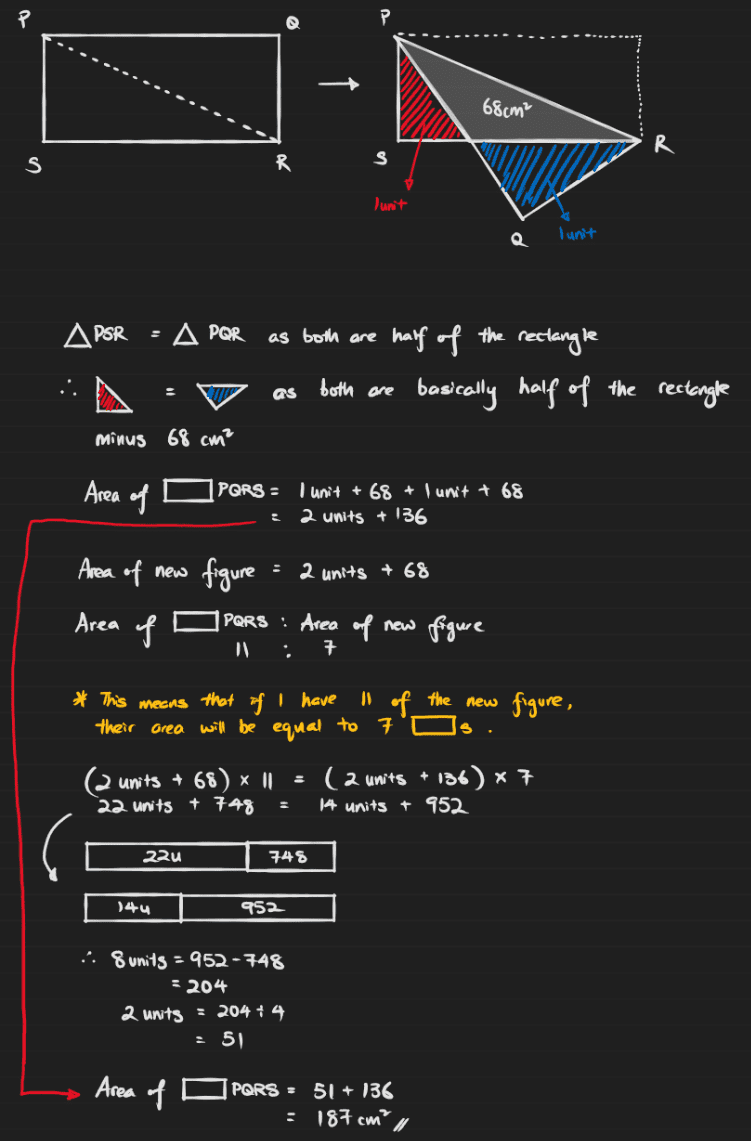 P Q P
68cm²
S R S R
1unit
Q 1unit
△ PSR = △ PQR as both are half of the rectangle
∴ = as both are basically half of the rectangle
minus 68 cm²
Area of PQRS = 1 unit + 68 + 1 unit + 68
= 2 units + 136
Area of new figure = 2 units + 68
Area of PQRS : Area of new figure
11 : 7
* This means that if I have 11 of the new figure,
their area will be equal to 7 s.
(2 units + 68) × 11 = (2 units + 136) × 7
22 units + 748 = 14 units + 952
22u 748
14u 952
∴ 8 units = 952 - 748
= 204
2 units = 204 ÷ 4
= 51
Area of PQRS = 51 + 136
= 187 cm²